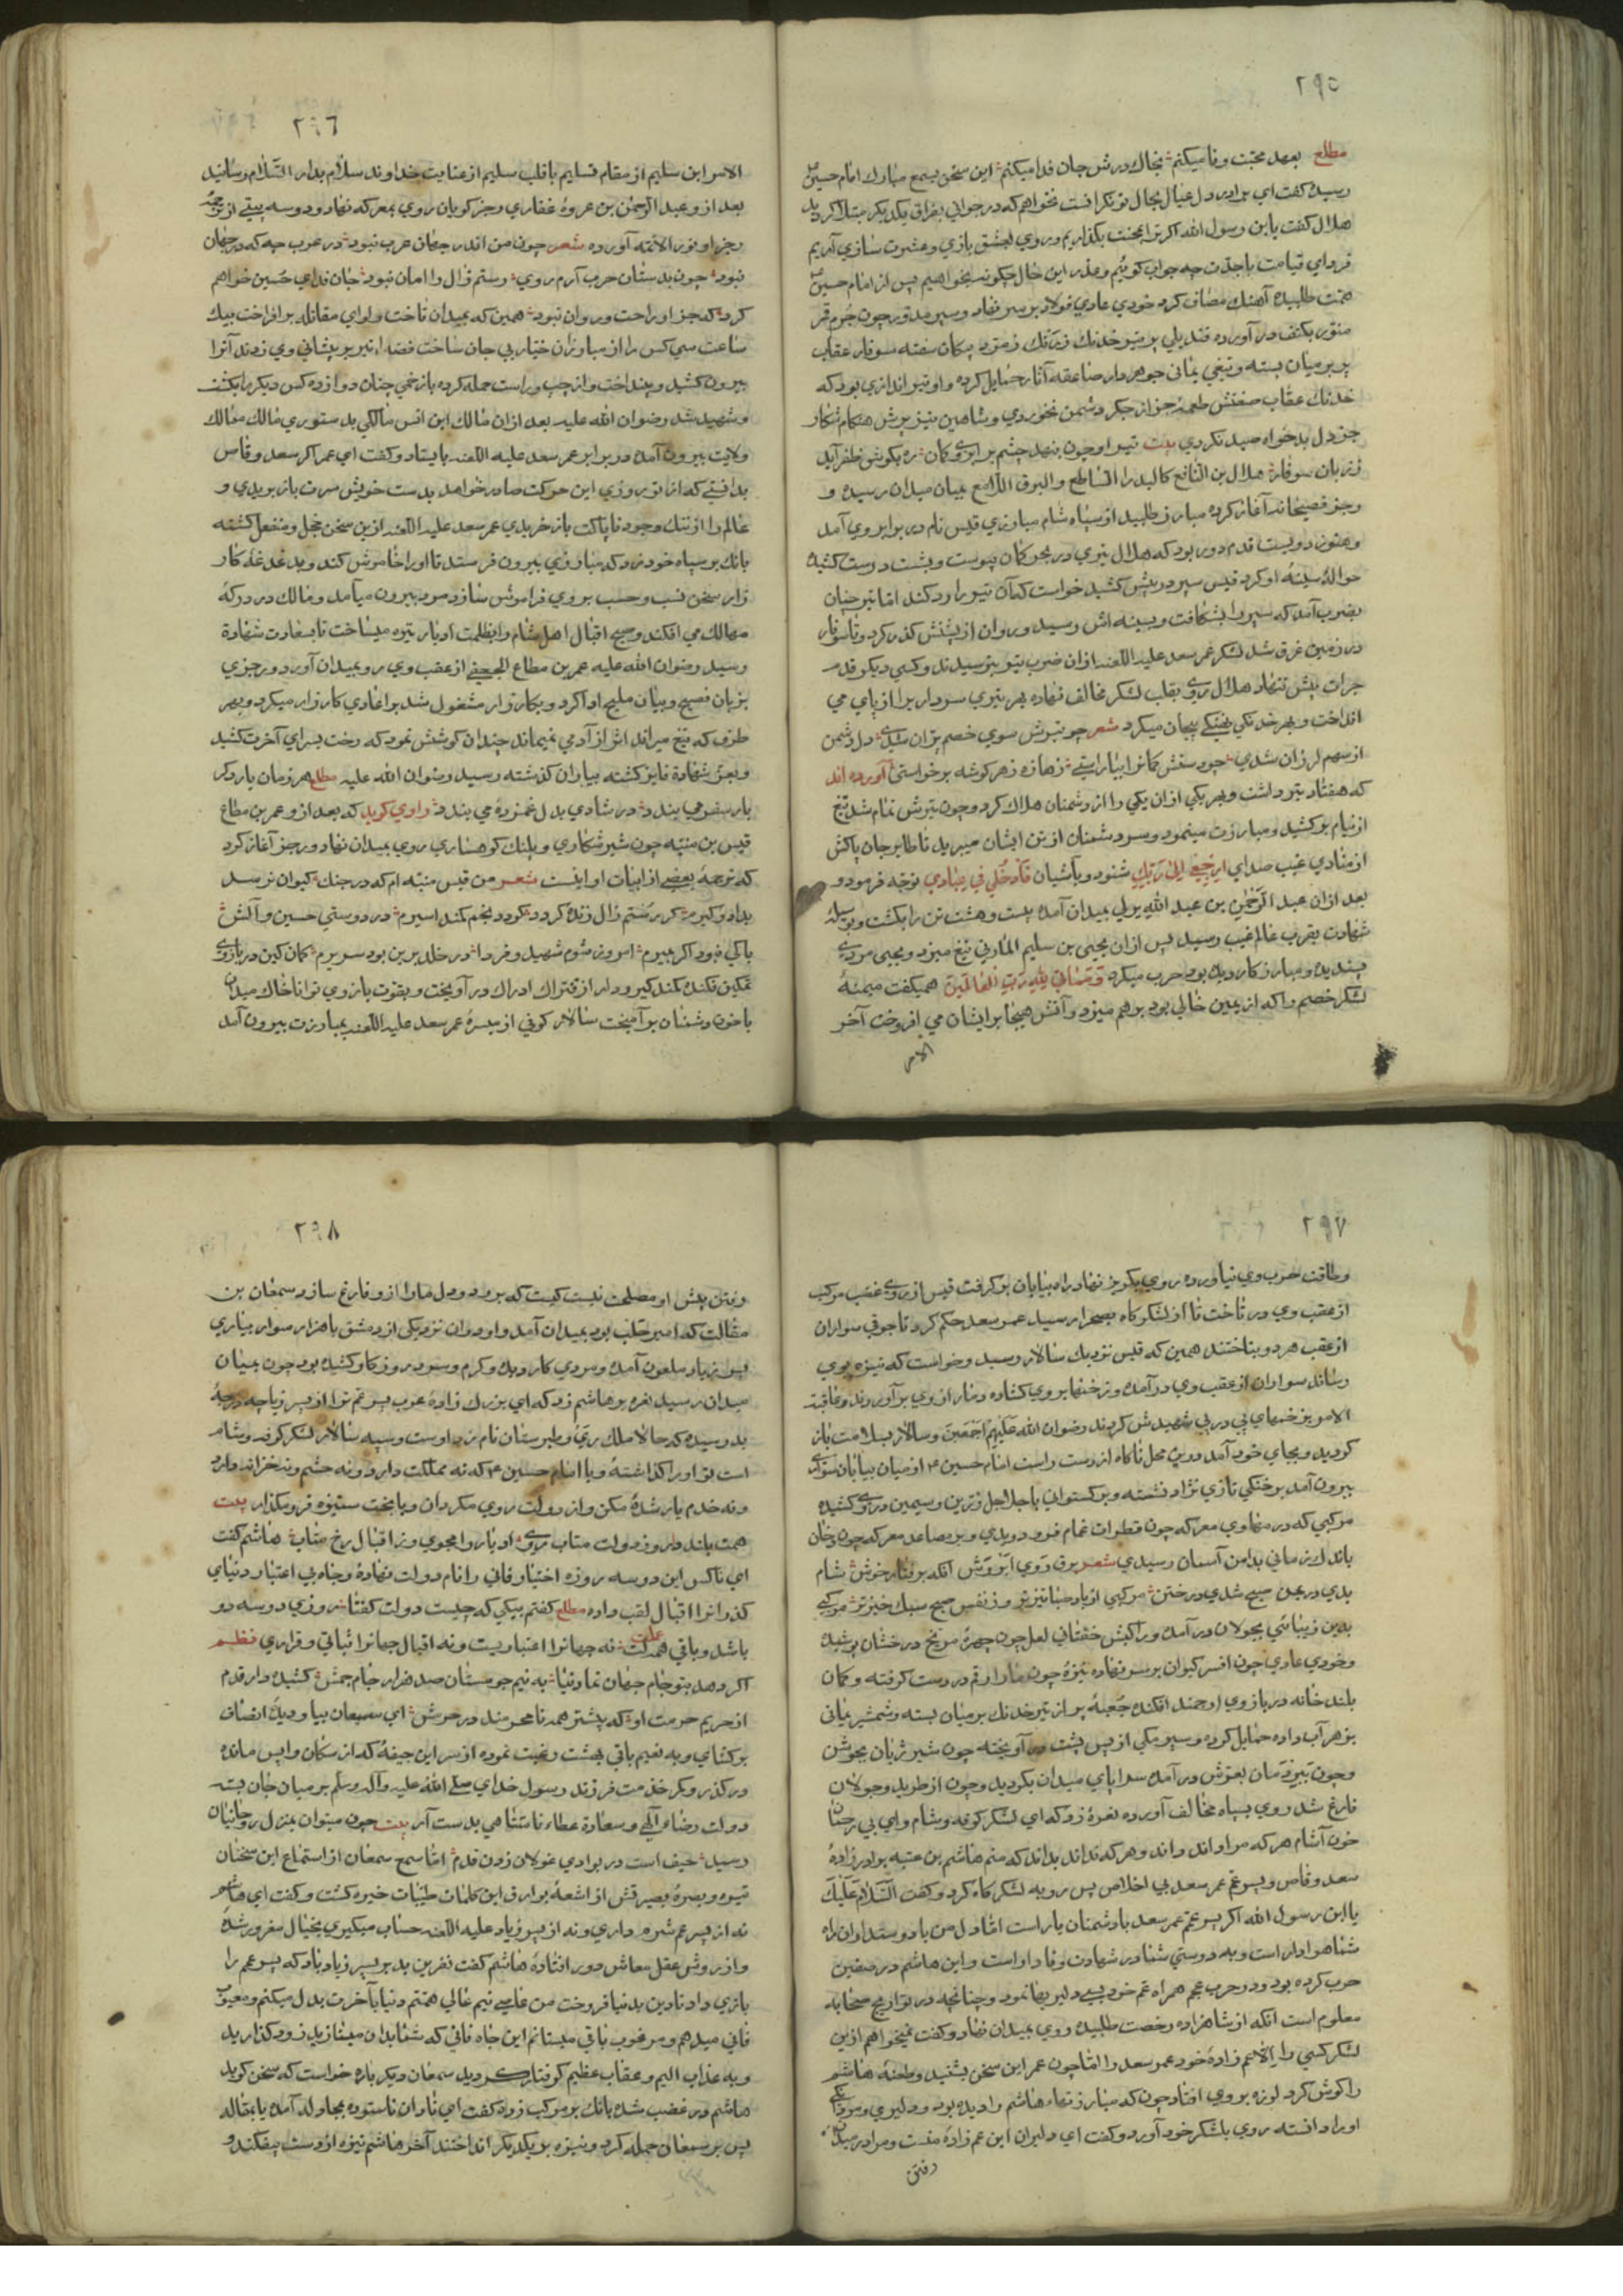 ۲۹۵
مطلع بعهد محبت وفا میکنم بخاک درش جان فدا میکنم این سخن بسمع مبارک امام حسین
رسید گفت ای برادر دل عیال بحال تو نگرانست نخواهم که در جوانی بفراق یکدیگر مبتلا گردید
هلال گفت یابن رسول الله اگر ترا بمحنت بگذاریم و روی بعشق بازی و عشرت سازی آریم
فردای قیامت با جدّت چه جواب گوئیم و عذر این حال چگونه بخواهیم پس از امام حسین
همّت طلبیده آهنک مصاف کرد خودی عادی فولاد بر سر نهاد و سپر مدوّر چون جرم قمر
منوّر بکتف در آورده
پر بر میان بسته و تیغی یمانی جوهر دار صاعقه آثار حمایل کرده و او تیراندازی بود که
خدنک عقاب صفتش طعمه جز از جکر دشمن نخوردی و شاهین تیز پرش هنکام شکار
جز دل بدخواه صید نکردی بیت تیر او چون بنهد چشم بر ابروی کمان زه بکوش ظفر آید
ز زبان سوفار هلال بن النافع کالبدر الساطع و البرق اللامع بمیان میدان رسیده و
رجز فصیحانه آغاز کرده مبارز طلبید از سپاه شام مبارزی قیس نام در برابر وی آمد
و هنوز دویست قدم دور بود که هلال تیری در بحر کمان پیوست و بشست درست کشیده
حوالهٔ سینهٔ او کرد قیس سپر در پیش کشید خواست که آن تیر را رد کند امّا تیر چنان
بضرب آمد که سپر را بشکافت و بسینه اش رسید و روان از پشتش گذر کرد و تا سوفار
در زمین غرق شد لشکر عمر سعد علیه اللعنه از ان ضرب تیر بترسیدند و کسی دیکر قدم
جرات پیش ننهاد هلال روی بقلب لشکر مخالف نهاده بهر تیری سوداری را از پای می
انداخت و بهر خدنکی بیجان میکرد شعر چو تیرش سوی خصم پرّان شدی دل دشمن
از سهم لرزان شدی چو دستش کمانرا بیاراستی زهازه ز هر گوشه برخواستی آورده اند
که هفتاد تیر داشت و بهر یکی از ان یکی را از دشمنان هلاک کرد و چون تیرش تمام شد تیغ
از نیام برکشید و مبارزت مینمود و سر دشمنان از تن ایشان میبرید تا طایر جان پاکش
از منادی غیب صدای ارجعی الی ربّک شنود و باشیان فادخلی فی عبادی توجّه فرمود و
بعد از ان عبد الرّحمن بن عبد الله یزنی بمیدان آمده بیست و هشت تن را بکشت و بوسیله
شهادت بقرب عالم غیب رسید پس از ان یحیی بن سلیم المازنی تیغ میزد و یحیی مردی
پسندیده و مبارز کار دیده بود حرب میکرد و مماتی لله رب العالمین همیکفت میمنهٔ
لشکر خصم را که از یمین خالی بود برهم میزد و آتش هیجا بر ایشان می افروخت آخر
الامر
۲۹٦
الامر ابن سلیم از مقام تسلیم با قلب سلیم از عنایت خداوند سلام بدار السّلام رسانید
بعد از و عبد الرّحمن بن عروهٔ غفاری رجز کویان روی بمعرکه نهاد و دو سه بیتی از ترجمهٔ
رجز او نور الائمّه آورده شعر چون من اندر جهان حرب نبود در عرب چه که در جهان
نبود چون بدستان حرب آرم روی رستم زال را امان نبود جان فدای حسین خواهم
کرد که جز او راحت و روان نبود همین که بمیدان تاخت و لوای مقاتله برافراخت بیک
ساعت سی کس را از مبارزان ختیار بی جان ساخت قضا را تیر بر پیشانی وی زدند آنرا
بیرون کشید و بینداخت و از چپ و راست حمله کرده باز خمی چنان دوازده کس دیکر را بکشت
و شهید شد رضوان الله علیه بعد از ان مالک ابن انس مالکی بدستوری مالک ممالک
ولایت بیرون آمده در برابر عمر سعد علیه اللعنه بایستاد و کفت ای عمر اکر سعد وقاص
بدانستی که از تو روزی این حرکت صادر خواهد بدست خویش سرت باز بریدی و
عالم را از ننک وجود ناپاکت باز خریدی عمر سعد علیه اللعنه ازین سخن خجل و منفعل کشته
بانک بر سپاه خود زد که مبارزی بیرون فرستد تا او را خاموش کند و بدغدغهٔ کار
زار سخن نسب و حسب بر وی فراموش سازد مرد بیرون میآمد و مالک در درکهٔ
مهالک می افکند و صبح اقبال اهل شام را بظلمت ادبار تیره میساخت تا بسعادت شهادة
رسید رضوان الله علیه عمر بن مطاع الجعفی از عقب وی رو بمیدان آورد و رجزی
بزبان فصیح و بیان ملیح ادا کرد و بکارزار مشغول شد با اعادی کارزار میکرد و بهر
طرف که تیغ میراند اثر از آدمی نمیماند چندان کوشش نمود که رخت بسرای آخرت کشید
و بعزّ شهادة فایز کشته بیاران کذشته رسید رضوان الله علیه مطلع هر زمان یار دکر
بار سفر می بندد در شادی بدل غمزده می بندد راوی کوید که بعد از و عمر بن مطاع
قیس بن منبّه چون شیر شکاری و پلنک کوهساری روی بمیدان نهاد و رجز آغاز کرد
که ترجمهٔ بعضی از ابیات او اینست شعر من قیس منبّه ام که در جنک کیوان نرسد
بدار و کیرم کر رستم زال زنده کردد کردد بخم کمند اسیرم در دوستی حسین و آلش
باکی نبود اکر بمیرم امروز شوم شهید و فردا در خلد برین بود سریرم کمان کین در بازوی
تمکین فکنده کمند کیر و دار از فتراک ادراک در آویخت و بقوت بازوی توانا خاک میدان
با خون دشمنان برآمیخت سالار کوفی از میسرهٔ عمر سعد علیه اللعنه بمبارزت بیرون آمد
۲۹۷
و طاقت حرب وی نیاورده روی بکریز نهاد راه بیابان برکرفت قیس از روی غضب مرکب
از عقب وی در تاخت تا از لشکرگاه بصحرا رسید عمر سعد حکم کرد تا جوقی سواران
از عقب هر دو بتاختند همین که قیس نزدیک سالار رسید و خواست که نیزه بوی
رساند سواران از عقب وی در آمده و زخمها بر وی کشاده دمار از وی برآوردند و عاقبت
الامر بزخمهای پی در پی شهیدش کردند رضوان الله علیهم اجمعین و سالار بسلامت باز
کردید و بجای خود آمد درین محل ناکاه از دست راست امام حسین از میان بیابان سواری
بیرون آمد بر خنکی تازی نژاد نشسته و برکستوانی با جلاجل زرّین و سیمین در وی کشیده
مرکبی که در مهاوی معرکه چون قطرات غمام فرود دویدی و بر مصاعد معرکه چون دخان
باندک زمانی بدامن آسمان رسیدی شعر برق روی ابر وش آنکه برفتار خوش شام
بدی در عدن صبح شدی در ختن مرکبی از باد صبا تیزتر وز نفس صبح سبک خیزتر مرکبی
بدین زیبائی بجولان در آمده و راکبش خفتانی لعل چون چهرهٔ مرّیخ درخشان پوشیده
و خودی عادی چون افسر کیوان بر سر نهاده نیزهٔ چون مار ارقم در دست کرفته و کمان
بلند خانه در بازوی ارجمند افکنده جعبهٔ پر از تیر خدنک بر میان بسته و شمشیر یمانی
بزهر آب داده حمایل کرده و سپر مکی از پس پشت در آویخته چون شیر ژیان بجوشن
و چون ببر دمان بغرّش در آمده سراپای میدان بکردید و چون از طرید و جولان
فارغ شد روی بسپاه مخالف آورده نعرهٔ زد که ای لشکر کوفه و شام و ای بی رحمان
خون آشام هر که مرا داند داند و هر که نداند بداند که منم هاشم بن عتبه برادر زادهٔ
سعد وقاص و پسر عم عمر سعد بی اخلاص پس رو به لشکرگاه کرد و کفت السّلام علیک
یا ابن رسول الله اکر پسر عمّم عمر سعد با دشمنان یار است امّا دل من با دوستداران راه
شما هوادار است و به دوستی شما در شهادت وفادار است و این هاشم در صفین
حرب کرده بود و در حرب عجم همراه عم خود بسی دلیریها نمود و چنانچه در تواریخ صحابه
معلوم است آنکه از شاهزاده رخصت طلبیده و روی بمیدان نهاد و کفت نمیخواهم ازین
لشکر کسی را الا عم زادهٔ خود عمر سعد را امّا چون عمر این سخن بشنید و طعنهٔ هاشم
را کوش کرد لرزه بر وی افتاد چون که مبارزتهاء هاشم را دیده بود و دلیری و مردانکی
او را دانسته روی بلشکر خود آورد و کفت ای دلیران این عم زادهٔ منست و مرا در میدان
رفتن
۲۹۸
رفتن پیش او مصلحت نیست کیست که برود و دل ما را از و فارغ سازد سمعان بن
مقاتل که امیر حلب بود بمیدان آمد و او در ان نزدیکی از دمشق با هزار سوار بیاری
پسر زیاد ملعون آمده و مردی کار دیده و کرم و سرد روزکار کشیده بود چون بمیان
میدان رسید نعره بر هاشم زد که ای بزرک زادهٔ عرب پسر عم ترا از پسر زیاد چه درجهٔ
بد رسیده که حالا ملک ری و طبرستان نام زد اوست و سپه سالار لشکر کوفه و شام
است تو او را کذاشتهٔ و با امام حسین که نه مملکت دارد و نه حشم و نه خزانه دارد
و نه خدم یار شدهٔ مکن و از دولت روی مکردان و با بخت ستیزه فرو مکذار بیت
همّت بلند دار و ز دولت متاب روی ادبار را مجوی و ز اقبال رخ متاب هاشم کفت
ای ناکس این دو سه روزه اختیار فانی را نام دولت نهادهٔ و جاه بی اعتبار دنیای
کذرانرا اقبال لقب داده مطلع کفتم بیکی که چیست دولت کفتا روزی دو سه دو
باشد و باقی همه لت نه جهانرا اعتباریست و نه اقبال جهانرا ثباتی و قراری نظم
اکر دهد بتو جام جهان نما دنیا به نیم جو مستان صد هزار جام جمش کشیده دار قدم
از حریم حرمت او که بیشتر همه نامحرمند در حرمش ای سمعان بیا و دیدهٔ انصاف
برکشای و به نعیم باقی بهشت رغبت نموده از سر این جیفهٔ که از سکان واپس مانده
در کذر و کمر خدمت فرزند رسول خدای صلی الله علیه و آله و سلم بر میان جان بسته
دولت رضاء الهی و سعادة عطاء نامتناهی بدست آر بیت چون میتوان بمنزل روحانیان
رسید حیف است در بوادی غولان زدن قدم امّا سمع سمعان از استماع این سخنان
تیره و بصرهٔ بصیرتش از اشعهٔ بوارق این کلمات طیّبات خیره کشت و کفت ای هاشم
نه از پسر عم شرم داری و نه از پسر زیاد علیه اللعنه حساب میکیری بخیال مغرور شدهٔ
و از روش عقل معاش دور افتادهٔ هاشم کفت نفرین بد بر پسر زیاد باد که پسر عم را
بازی داد تا دین بدنیا فروخت من عاصی نیم عالی همّتم دنیا بآخرت بدل میکنم و معیوب
فانی میدهم و مرغوب باقی میستانم این جاه فانی که شما بدان مینازید زود کذارید
و به عذاب الیم و عقاب عظیم کرفتار کردید سمعان دیکر باره خواست که سخن کوید
هاشم در غضب شده بانک بر مرکب زد و کفت ای نادان ناستوده بمجادله آمدهٔ یا بمقاتله
پس بر سمعان حمله کرد و نیزه بر یکدیکر انداختند آخر هاشم نیزه از دست بیفکند و